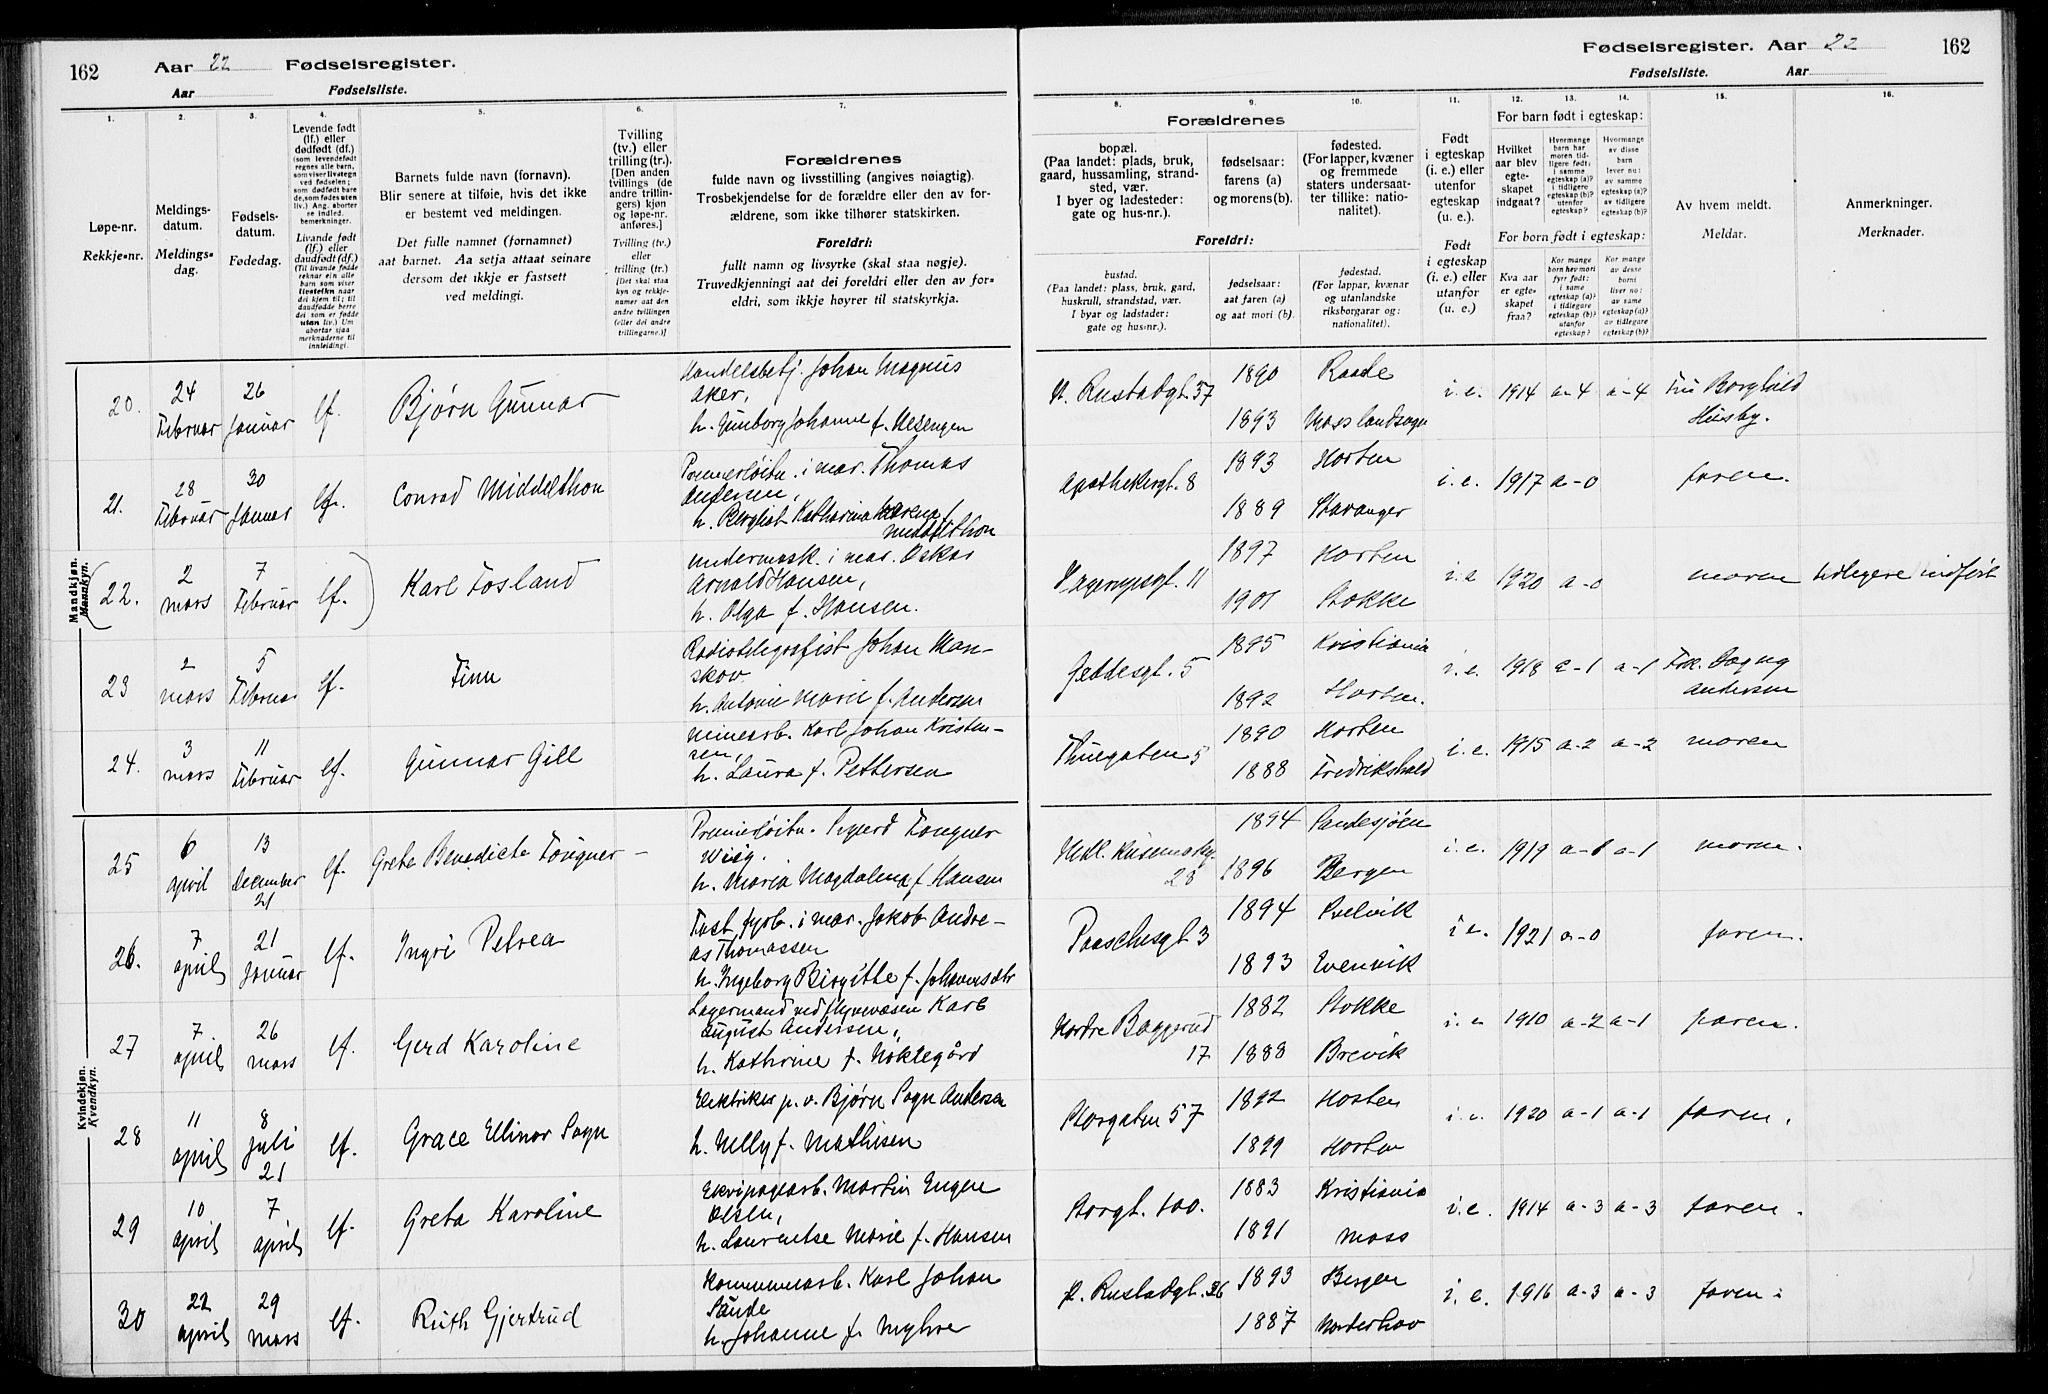 162 Aar 22 Fødselsregister.
Aar Fødselsliste.
Fødselsregister. Aar 22 162
Fødselsliste. Aar
1.
2.
3.
4.
5.
6.
7.
Løpe-nr.
Rekkje-nr.
Meldings-
datum.
Meldings-
dag.
Fødsels-
datum.
Fødedag.
Levende født
(lf.) eller
dødfødt (df.)
Barnets fulde navn (fornavn).
Blir senere at tilføie, hvis det ikke
er bestemt ved meldingen.
Det fulle namnet (fornamnet)
aat barnet. Aa setja attaat seinare
dersom det ikkje er fastsett
ved meldingi.
Tvilling
(tv.) eller
trilling (tr.).
[Den anden
tvillings (de
andre trillin-
gers) kjøn
og løpe-nr.
anføres.]
Tvilling (tv.)
eller
trilling (tr.)
Forældrenes
fulde navn og livsstilling (angives nøiagtig).
Trosbekjendelse for de forældre eller den av for-
ældrene, som ikke tilhører statskirken.
Foreldri:
fullt namn og livsyrke (skal staa nøgje).
Truvedkjenningi aat dei foreldri eller den av for-
eldri, som ikkje høyrer til statskyrkja.
8.
9.
10.
11.
12.
13.
14.
15.
16.
Forældrenes
bopæl.
(Paa landet: plads, bruk,
gaard, hussamling, strand-
sted, vær.
I byer og ladesteder:
gate og hus-nr.).
fødselsaar:
farens (a)
og morens (b).
fødested.
(For lapper, kvæner
og fremmede
staters undersaat-
ter tillike: natio-
nalitet).
Foreldri:
bustad.
(Paa landet: plass, bruk, gard,
huskrull, strandstad, vær.
I byar og ladstader:
gate og hus-nr.).
fødselsaar:
aat faren (a)
og aat mori (b).
fødestad.
(For lappar, kvænar
og utanlandske
riksborgarar og:
nationalitet).
Født
i egteskap
(i. e.) eller
utenfor
egteskap
(u. e.).
Født
i egteskap
(i. e.) eller
utanfor
(u. e.)
For barn født i egteskap:
Hvilket
aar blev
egte-
skapet
indgaat?
For born født i egteskap:
Kva aar
er egte-
skapet
fraa?
Av hvem meldt.
Meldar.
Anmerkninger.
Merknader.
Mandkjøn.
Mannkyn.
20. 24 Februar 26 Januar lf. Bjørn Gunnar Handelsbetj. Johan Magnus
Aker,
h. Gunborg Johanne f. Mesengen
N. Rustadgt. 37 1890 Raade i. e. 1914 a-4 a-4 Fru Borghild
1893 Moss landsogn Husby.
21. 28 Februar 30 Januar lf. Conrad Middelthon Premierløitn. i mar. Thomas
Andersen,
h. Bergliot Katharina f.
Middelthon
Apothekergt. 8 1893 Horten i. e. 1917 a-0 faren.
1889 Stavanger
(22. 2 mars 7 Februar lf.) Karl Fosland Undermask. i mar. Oskar
Arnold Hansen,
h. Olga f. Hansen.
11 1897 Horten i. e 1920 a-0 moren tidligere indført
1901 Stokke
23 2 mars 5 Februar lf. Finn Radiotelegrafist Johan Man-
skov
h. Antonie Marie f. Andersen
Geddesgt. 5 1895 Kristiania i. e. 1918 a-1 a-1 Frk. Dagny
1892 Horten. Andersen
24. 3 mars 11 Februar lf. Gunnar Gill Minearb. Karl Johan Kristen-
sen,
h. Laura f. Pettersen
Thuegaten 5 1890 Horten i. e. 1915 a-2 a-2 moren
1888 Fredrikshald
Kvindekjøn.
Kvendkyn.
25 6 april 13 December 21 lf. Greta Benedicte Fougner - Premierløitn. Sigurd Fougner
Wiig.
h. Maria Magdalena f. Hansen
28 1894 Sandesjøen i. e. 1919 a-1 a-1 moren.
1896 Bergen
26. 7 april 21 Januar lf. Ingri Petrea Fast fyrb. i mar. Jakob Andre-
as Thomassen
h. Ingeborg Birgitte f. Johannesdtr
Paaschesgt 3 1894 Svelvik i e. 1921 a-0 faren.
1893 Evenvik
27 7 april 26 mars lf. Gerd Karoline Lagermand ved flyvevæsen Karl
August Andersen,
h. Kathrine f. Nøklegård
Nordre Baggerud 1882 Stokke i. e 1910 a-2 a-1 faren.
17 1888 Brevik
28 11 april 8 juli 21 lf. Grace Ellinor Sogn Elektriker p. v. Bjørn Sogn Andersen
h. Nelly f. Mathisen
Storgaten 57 1892 Horten i. e. 1920 a-1 a-1 faren.
1899 Horten
29 10 april 7 april lf. Greta Karoline Ekvipagearb. Martin Engen
Olsen,
h. Laurentse Marie f. Hansen
Storgt. 100. 1883 Kristiania i. e. 1914 a-3 a-3 faren.
1891 Moss
30 22 april 29 mars lf. Ruth Gjertrud Kommunearb. Karl Johan
Sande
h. Johanne f. Myhre
N. Rustadgt. 36 1893 Bergen i. e. 1916 a-3 a-3 faren.
1887 Norderhov